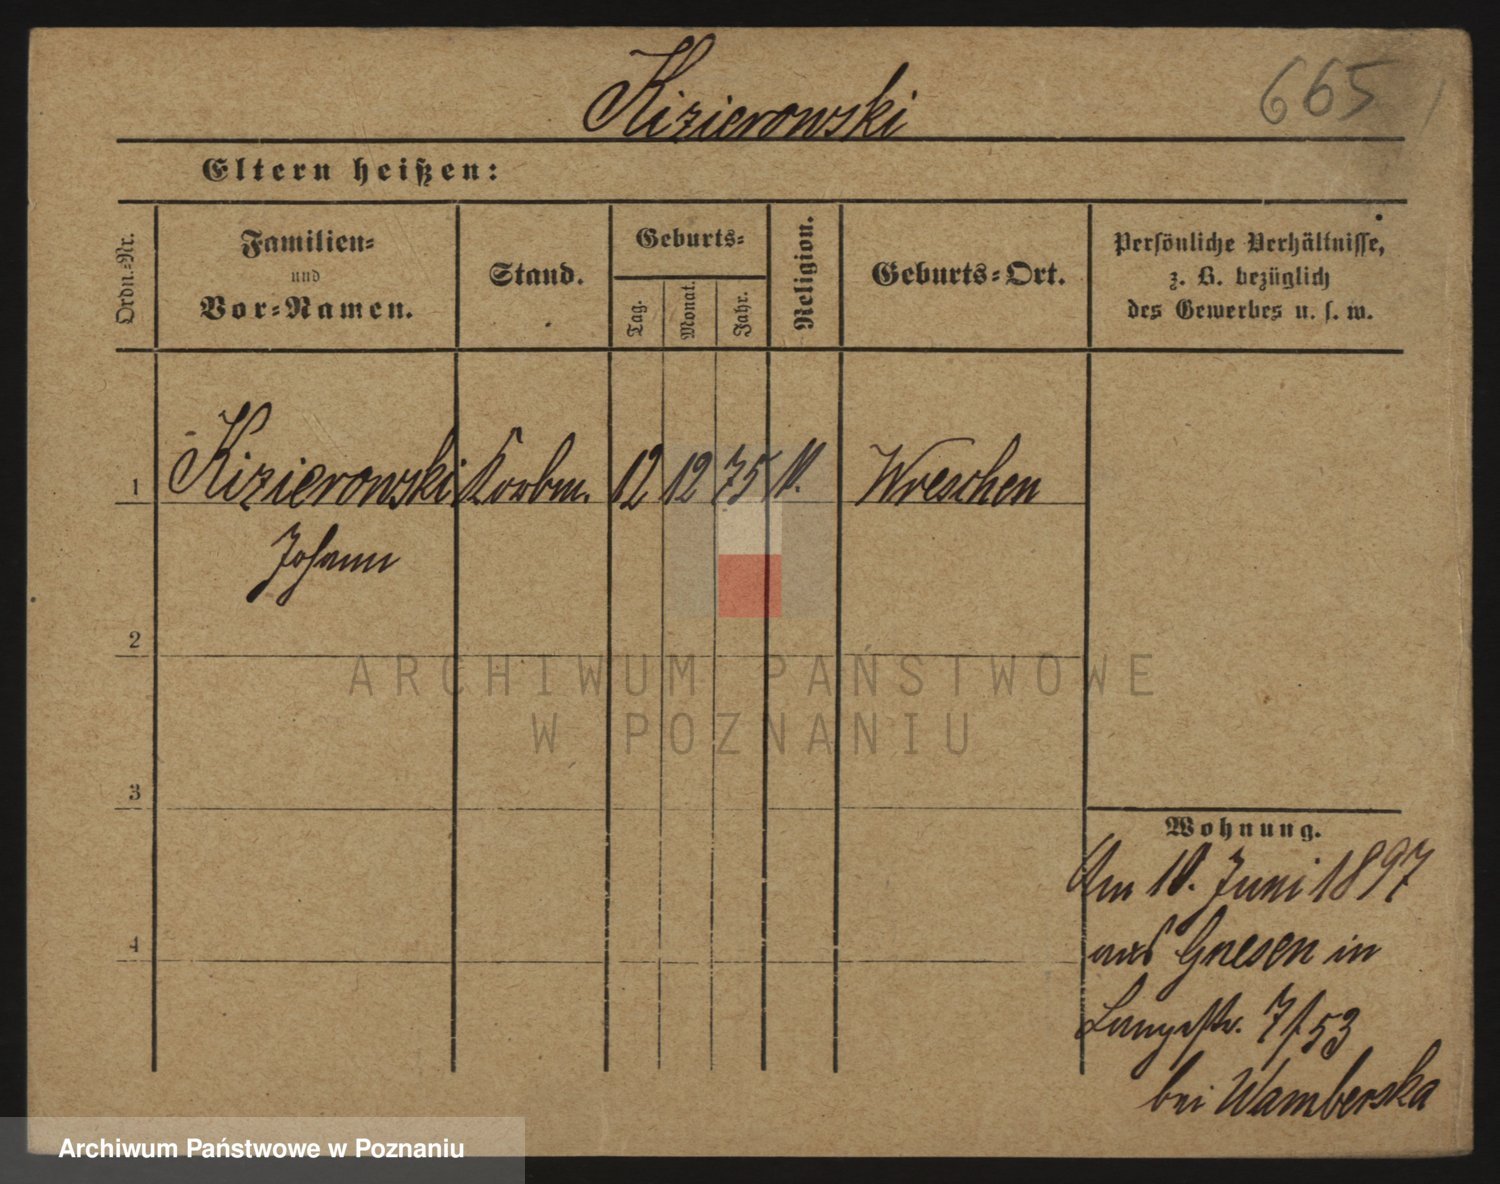 Kizierowski
665
Eltern heißen:
Ordn.-Nr.
Familien-
und
Vor-Namen.
Stand.
Geburts-
Tag.
Monat.
Jahr.
Religion.
Geburts-Ort.
Persönliche Verhältnisse,
z. B. bezüglich
des Gewerbes u. s. w.
1 Kizierowski Korbm. 12 12 75 Wreschen
Johann
2
3
4
ARCHIWUM PAŃSTWOWE
W POZNANIU
Wohnung.
Am 10. Juni 1897
aus Gnesen in
Langestr. 7/53
bei Wamberska
Archiwum Państwowe w Poznaniu